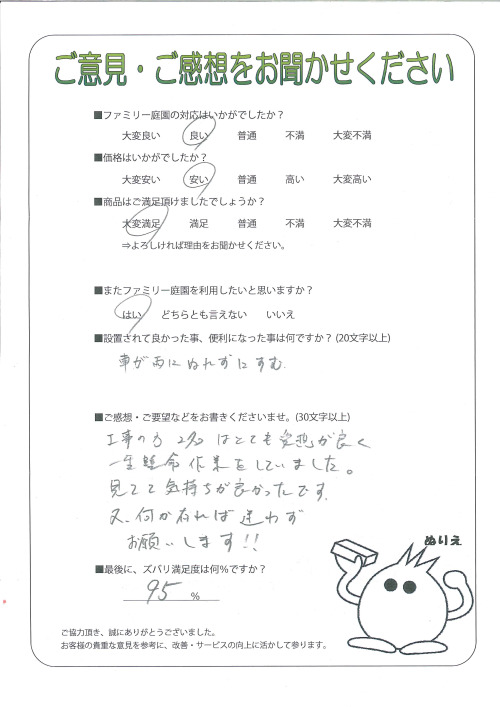 ご意見・ご感想をお聞かせください
■ファミリー庭園の対応はいかがでしたか？
大変良い 良い 普通 不満 大変不満
■価格はいかがでしたか？
大変安い 安い 普通 高い 大変高い
■商品はご満足頂けましたでしょうか？
大変満足 満足 普通 不満 大変不満
⇒よろしければ理由をお聞かせください。
■またファミリー庭園を利用したいと思いますか？
はい どちらとも言えない いいえ
■設置されて良かった事、便利になった事は何ですか？(20文字以上)
車が雨にぬれずにすむ.
■ご感想・ご要望などをお書きくださいませ。(30文字以上)
工事の方 2名はとても愛想が良く
一生懸命作業をしていました。
見てて気持ちが良かったです.
又、何か有れば迷わず
お願いします!!
ぬりえ
■最後に、ズバリ満足度は何％ですか？
95 ％
ご協力頂き、誠にありがとうございました。
お客様の貴重な意見を参考に、改善・サービスの向上に活かして参ります。